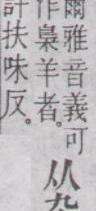 爾雅音義可
作梟羊者。
从
扶味反。